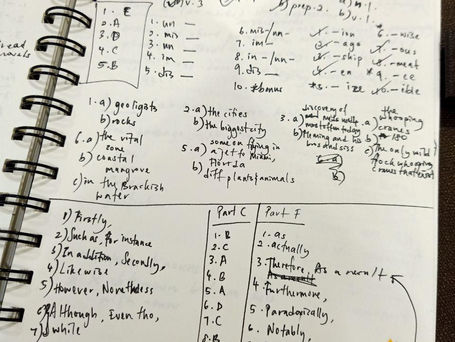 v. 3
b) prep. 2. b) v. 1.
1. E
2. A
3. D
4. C
5. B
1. un —
2. mis —
3. un —
4. im
5. dis —
6. mis-/un-
7. im-
8. in-/un-
9. dis-
10. *bonus
-ion
-age
-ship
-en
-ize
6. -wise
-ous
-ment
-ce
-ible
1. a) geoligists
b) rocks
2. a) the cities
b) the biggest city
3. a) discovery of
b) Fleming and his
4. a) the whooping cranes
b)
c) the only wild flock whooping cranes that exist
5. a) someone flying in a jet to Miami, Florida
b) diff plants & animals
6. a) the vital zone
b) coastal mangrove
c) in the brackish water
1) Firstly,
2) Such as, for instance
3) In addition, Secondly,
4) Likewise
5) However, Nonetheless
6) Although, Even tho,
7) while
Part C
1. B
2. C
3. A
4. B
5. A
6. D
7. C
8. B
Part F
1. as
2. actually
3. Therefore, As a result
4. Furthermore,
5. Paradoxically,
6. Notably,